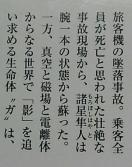 旅客機の墜落事故。乗客全
員が死亡と思われた壮絶な
事故現場から、諸星隼人は
腕一本の状態から蘇った。
一方、真空と磁場と電離体
からなる世界で「影」を追
い求める生命体“ガ”は、